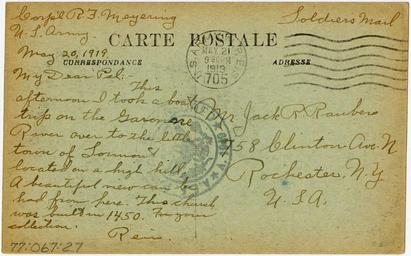 Corp'l R. F. Meyering
U. S. Army.
Soldiers Mail
May 20, 1919.
CARTE POSTALE
CORRESPONDANCE
ADRESSE
MAY 21
1919
705
My Dear Pal:
This
afternoon I took a boat
trip on the Garonne
River over to the little
town of
located on a high hill.
A beautiful view can be
had from here. This church
was built in 1450. For your
collection.
Rein.
Mr Jack R. Rauber
758 Clinton Ave. N
Rochester. N. Y
U. S. A.
77:067:27